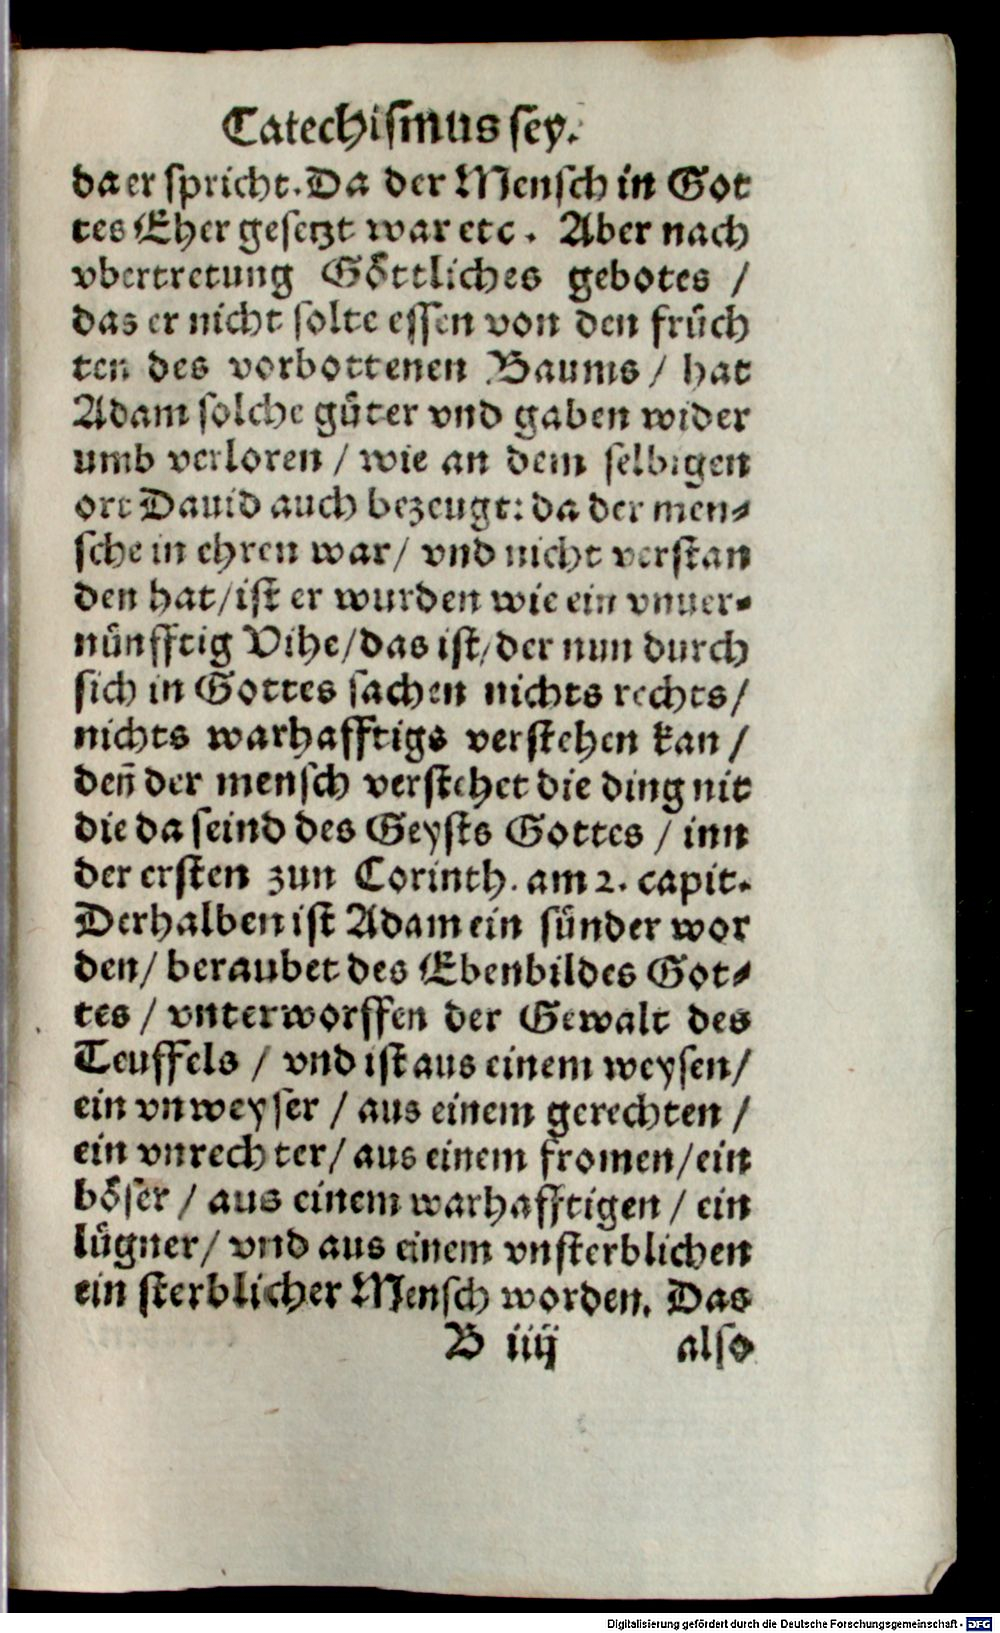 Catechismus sey.
da er spricht. Da der Mensch in Got
tes Eher gesetzt war etc. Aber nach
vbertretung Göttliches gebotes /
das er nicht solte essen von den früch
ten des vorbottenen Baums / hat
Adam solche güter vnd gaben wider
umb verloren / wie an dem selbigen
ort Dauid auch bezeugt: da der men⸗
sche in ehren war / vnd nicht verstan
den hat / ist er wurden wie ein vnuer⸗
nünfftig Vihe / das ist / der nun durch
sich in Gottes sachen nichts rechts /
nichts warhafftigs verstehen kan /
den̄ der mensch verstehet die ding nit
die da seind des Geysts Gottes / inn
der ersten zun Corinth. am 2. capit.
Derhalben ist Adam ein sünder wor
den / beraubet des Ebenbildes Got⸗
tes / vnterworffen der Gewalt des
Teuffels / vnd ist aus einem weysen /
ein vnweyser / aus einem gerechten /
ein vnrechter / aus einem fromen / ein
böser / aus einem warhafftigen / ein
lügner / vnd aus einem vnsterblichen
ein sterblicher Mensch worden. Das
B iiij also
Digitalisierung gefördert durch die Deutsche Forschungsgemeinschaft - DFG